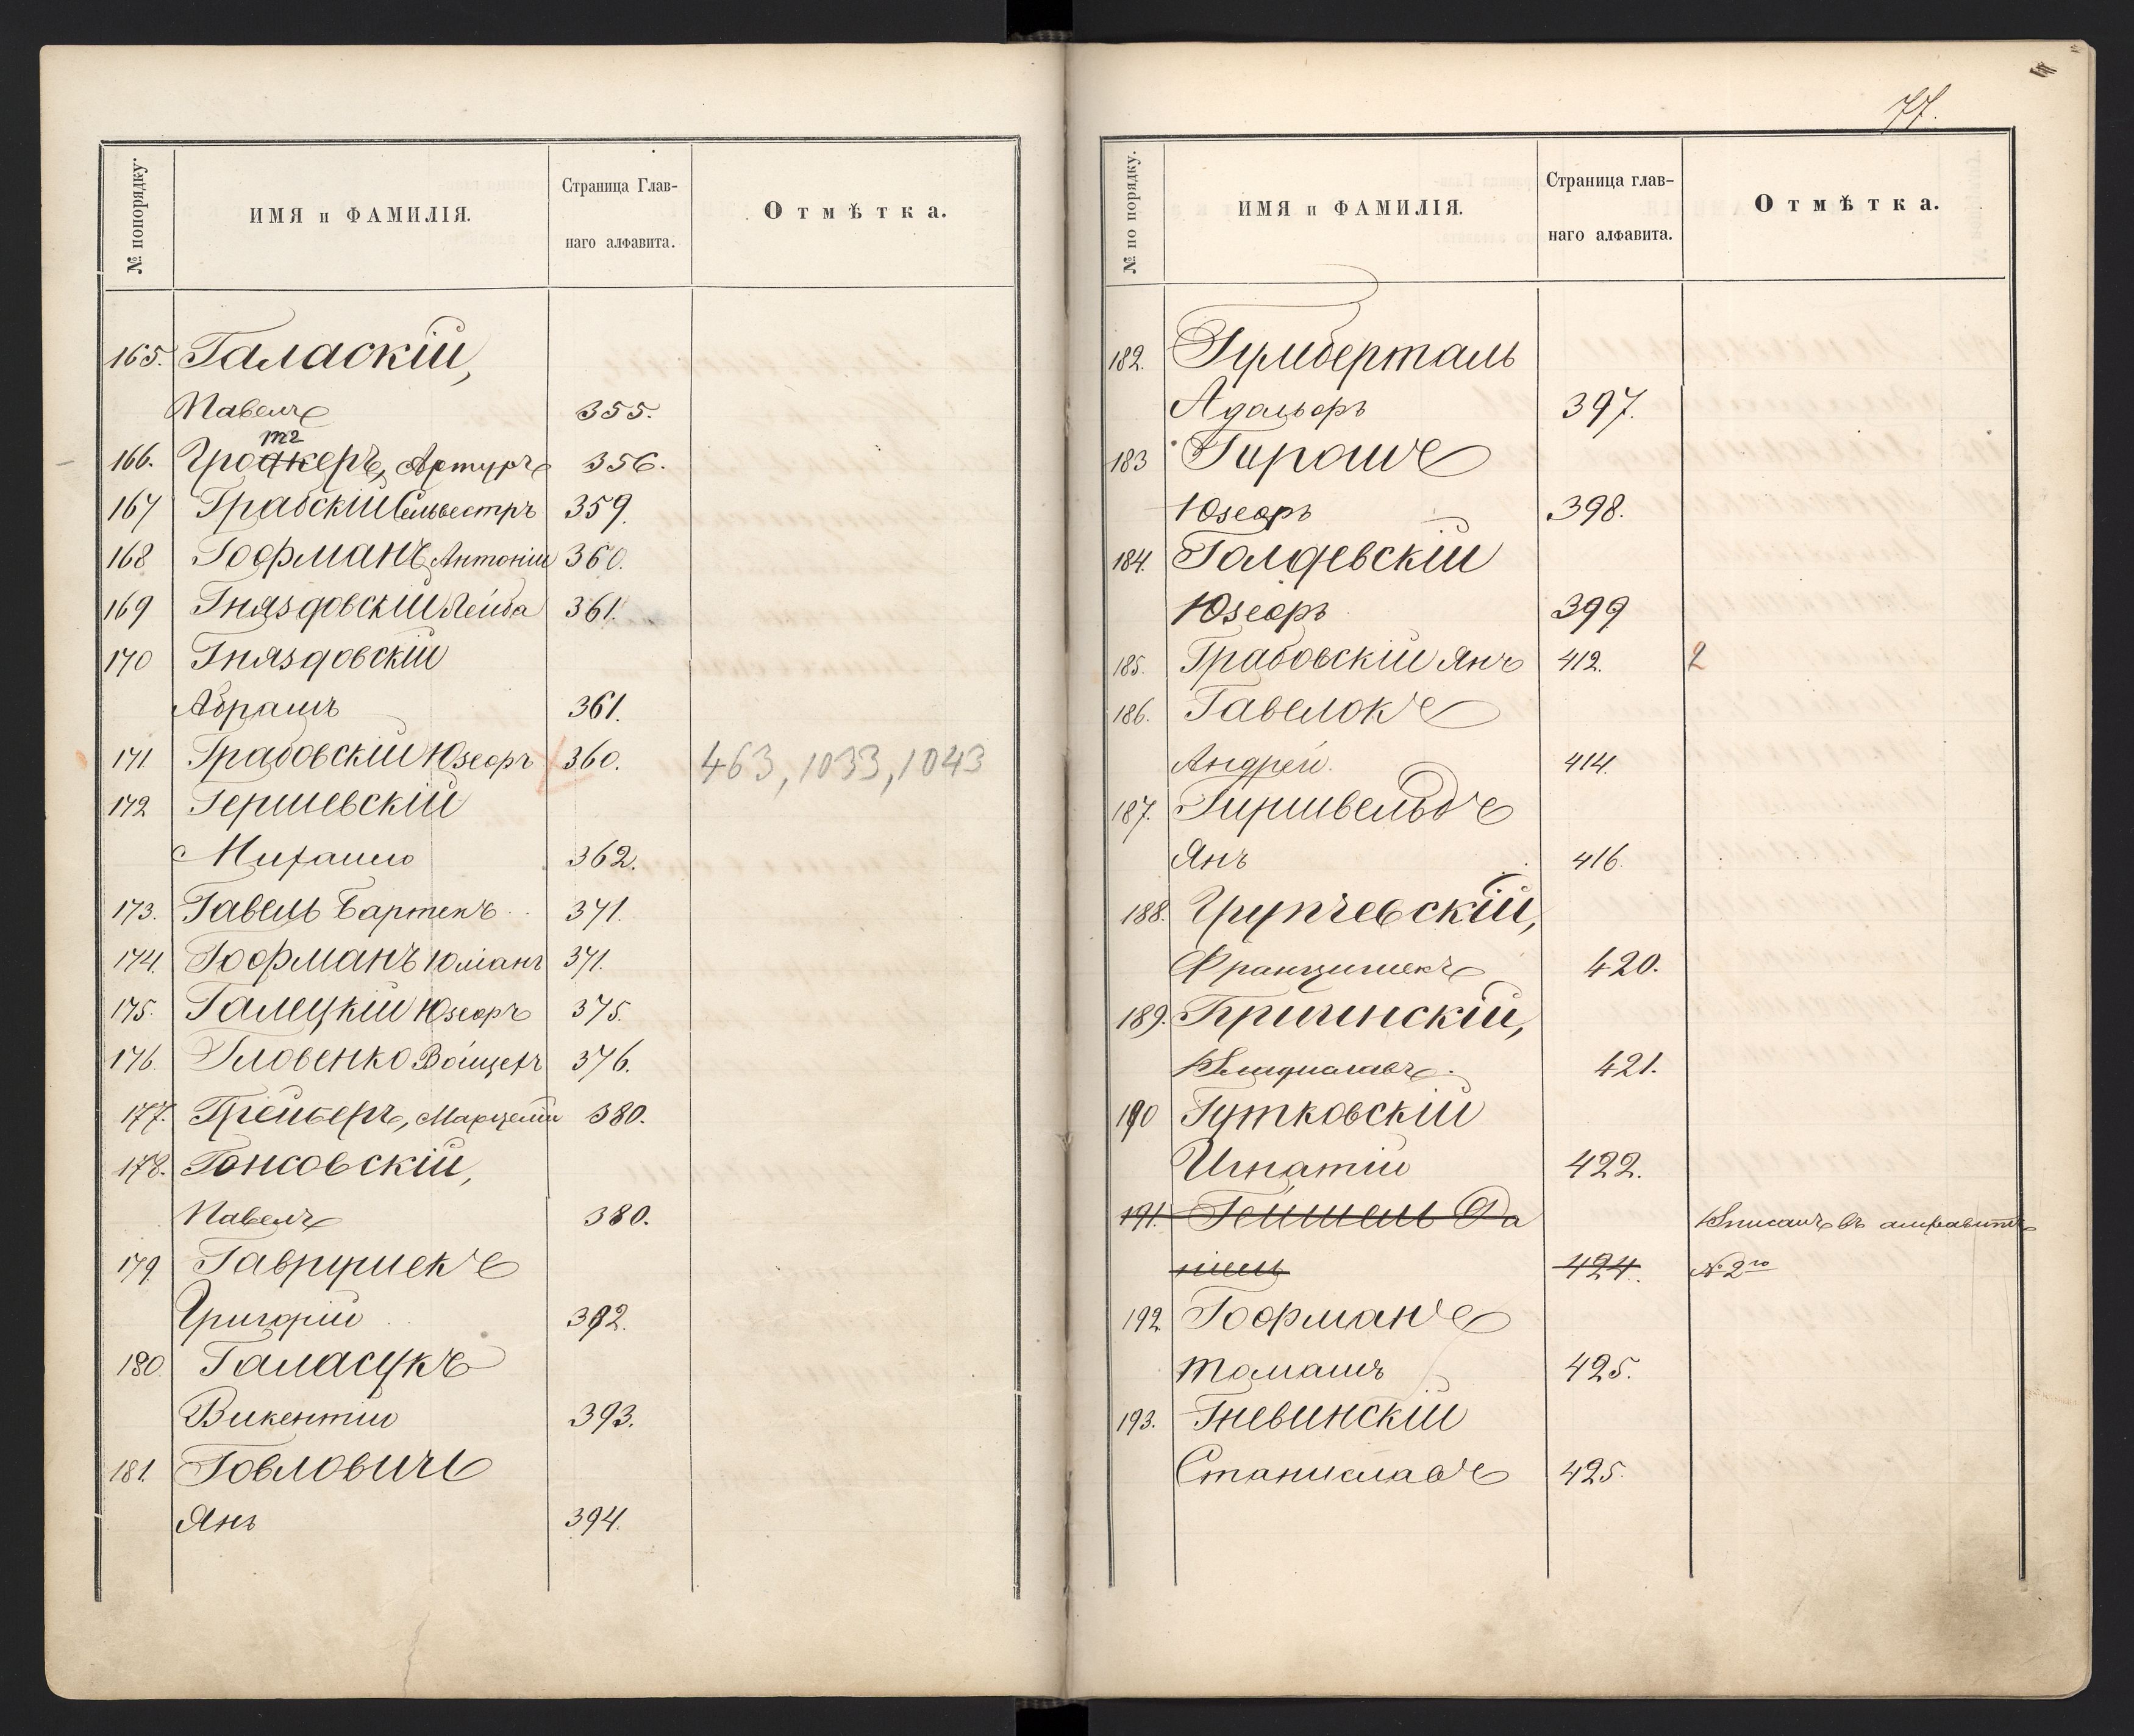 № попорядку.
ИМЯ и ФАМИЛІЯ.
Страница Глав-
наго алфавита.
Отмѣтка.
165. Галаскій,
Павелъ 355.
тг
166. Гродкеръ, Артуръ 356.
167 Грабскій Сильвестръ 359.
168 Гофманъ Антоній 360.
169 Гняздовскій Лейба 361.
170 Гняздовскій
Абрамъ 361.
171 Грабовскій Юзефъ 360. 463, 1033, 1043
172 Гершевскій
Михаилъ 362.
173. Гавель Бартекъ 371.
174. Гофманъ Юліанъ 371.
175. Галецкій Юзефъ 375.
176. Гловенко Войцехъ 376.
177. Грейберъ, Марцелій 380.
178. Гонсовскій,
Павелъ 380.
179 Гаврушекъ
Григорій 392.
180. Галасукъ
Викентій 393.
181. Говловичъ
Янъ 394.
77.
№ по порядку.
ИМЯ и ФАМИЛІЯ.
Страница глав-
наго алфавита.
Отмѣтка.
182. Гумберталь
Адольфъ 397.
183 Гирошъ
Юзефъ 398.
184. Голдевскій
Юзефъ 399
185. Грабовскій Янъ 412. 2
186. Гавелокъ
Андрей. 414.
187. Гиршвельдъ
Янъ 416.
188. Групчевскій,
Францишекъ 420.
189. Гричинскій,
Владиславъ. 421.
190 Гутковскій
Игнатій 422.
191. Гейшель Да Вписанъ въ алфавитъ
ніель 424. № 2го
192. Гофманъ
Томашъ 425.
193. Гневинскій
Станиславъ 425.